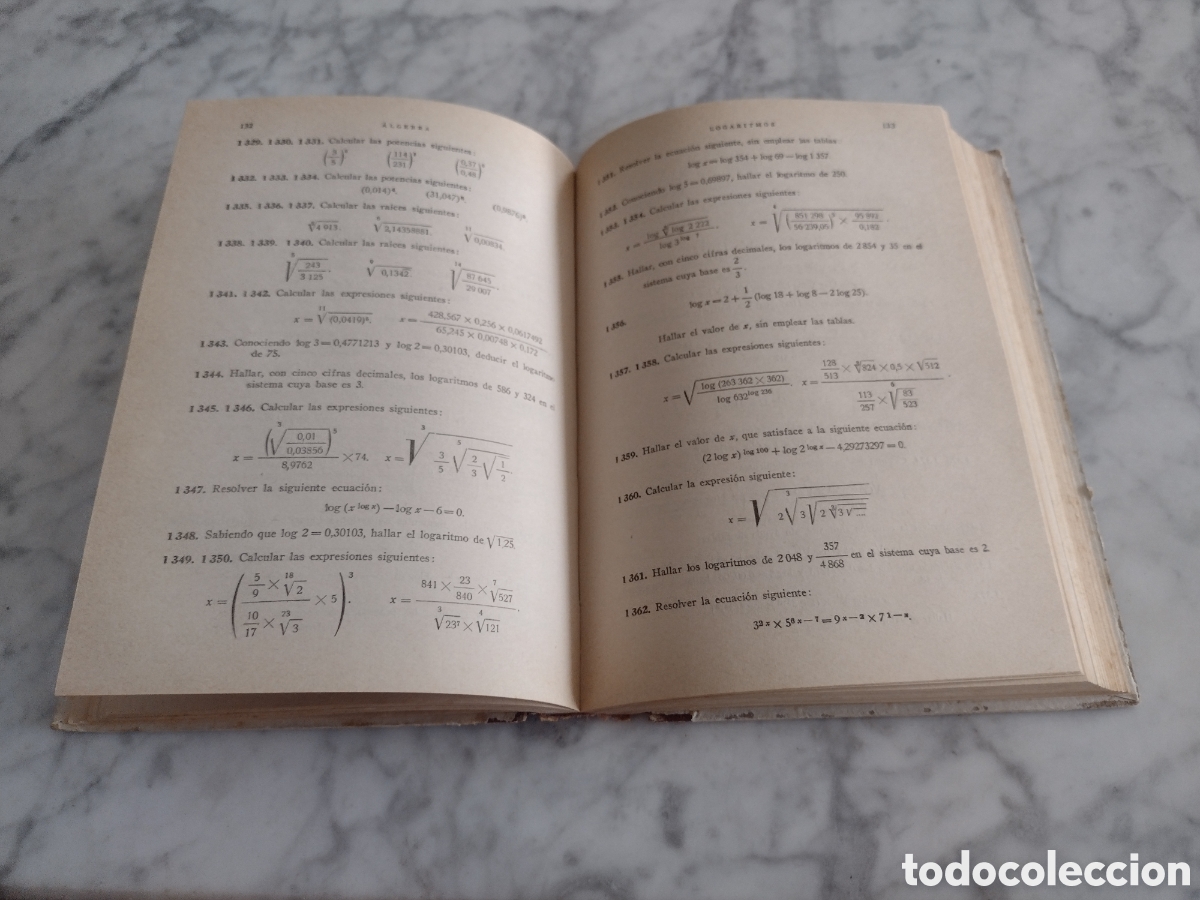 132 ÁLGEBRA
1329. 1330. 1331. Calcular las potencias siguientes:
1332. 1333. 1334. Calcular las potencias siguientes:
(0,014)⁴. (31,047)⁶.
1335. 1336. 1337. Calcular las raíces siguientes:
1338. 1339. 1340. Calcular las raíces siguientes:
⁵√(243/3 125). ⁹√0,1342. ¹⁴√(87 645/29 007)
1341. 1342. Calcular las expresiones siguientes:
x = ¹¹√(0,0419)⁸. x = (428,567 × 0,256 × 0,0617492)/(65,245 × 0,00748 × 0,572)
1343. Conociendo log 3 = 0,4771213 y log 2 = 0,30103, deducir el logaritmo
de 75.
1344. Hallar, con cinco cifras decimales, los logaritmos de 586 y 324 en el
sistema cuya base es 3.
1345. 1346. Calcular las expresiones siguientes:
x = (³√(0,01/0,03856))⁵/8,9762 × 74. x = ³√(3/5 ⁵√(2/3 √(1/2)))
1347. Resolver la siguiente ecuación:
log (x^(log x)) — log x — 6 = 0.
1348. Sabiendo que log 2 = 0,30103, hallar el logaritmo de √1,25.
1349. 1350. Calcular las expresiones siguientes:
x = ((5/9 × ¹⁸√2)/(10/17 × ⁷³√3) × 5)³. x = (841 × 23/840 × ⁷√527)/(³√23⁷ × ⁴√121).
LOGARITMOS 133
1351. Resolver la ecuación siguiente, sin emplear las tablas:
log x = log 354 + log 69 — log 1 357
1352. Conociendo log 5 = 0,69897, hallar el logaritmo de 250.
1353. 1354. Calcular las expresiones siguientes:
1355. Hallar, con cinco cifras decimales, los logaritmos de 2 854 y 35 en el
sistema cuya base es 2/3.
log x = 2 + 1/2 (log 18 + log 8 — 2 log 25).
1356.
Hallar el valor de x, sin emplear las tablas.
1357. 1358. Calcular las expresiones siguientes:
x = √(log (263 362 × 362)/log 632^(log 236)). x = (125/513 × ⁹√824 × 0,5 × √512)/(113/257 × ⁶√(83/523)).
1359. Hallar el valor de x, que satisface a la siguiente ecuación:
(2 log x)^(log 100) + log 2^(log x) — 4,29273297 = 0.
1360. Calcular la expresión siguiente:
1361. Hallar los logaritmos de 2 048 y 357/4 868 en el sistema cuya base es 2.
1362. Resolver la ecuación siguiente:
todocoleccion